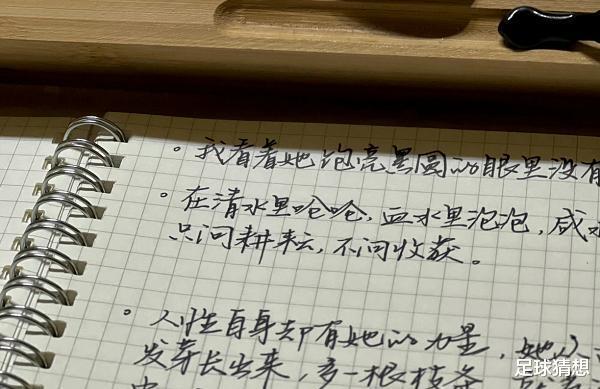 。我看着她泡亮黑圆的眼里没有
。在清水里呛呛,血水里泡泡,咸水
只问耕耘,不问收获。
。人性自身却有她的力量,她
发芽长出来,多一根枝条
足球猜想